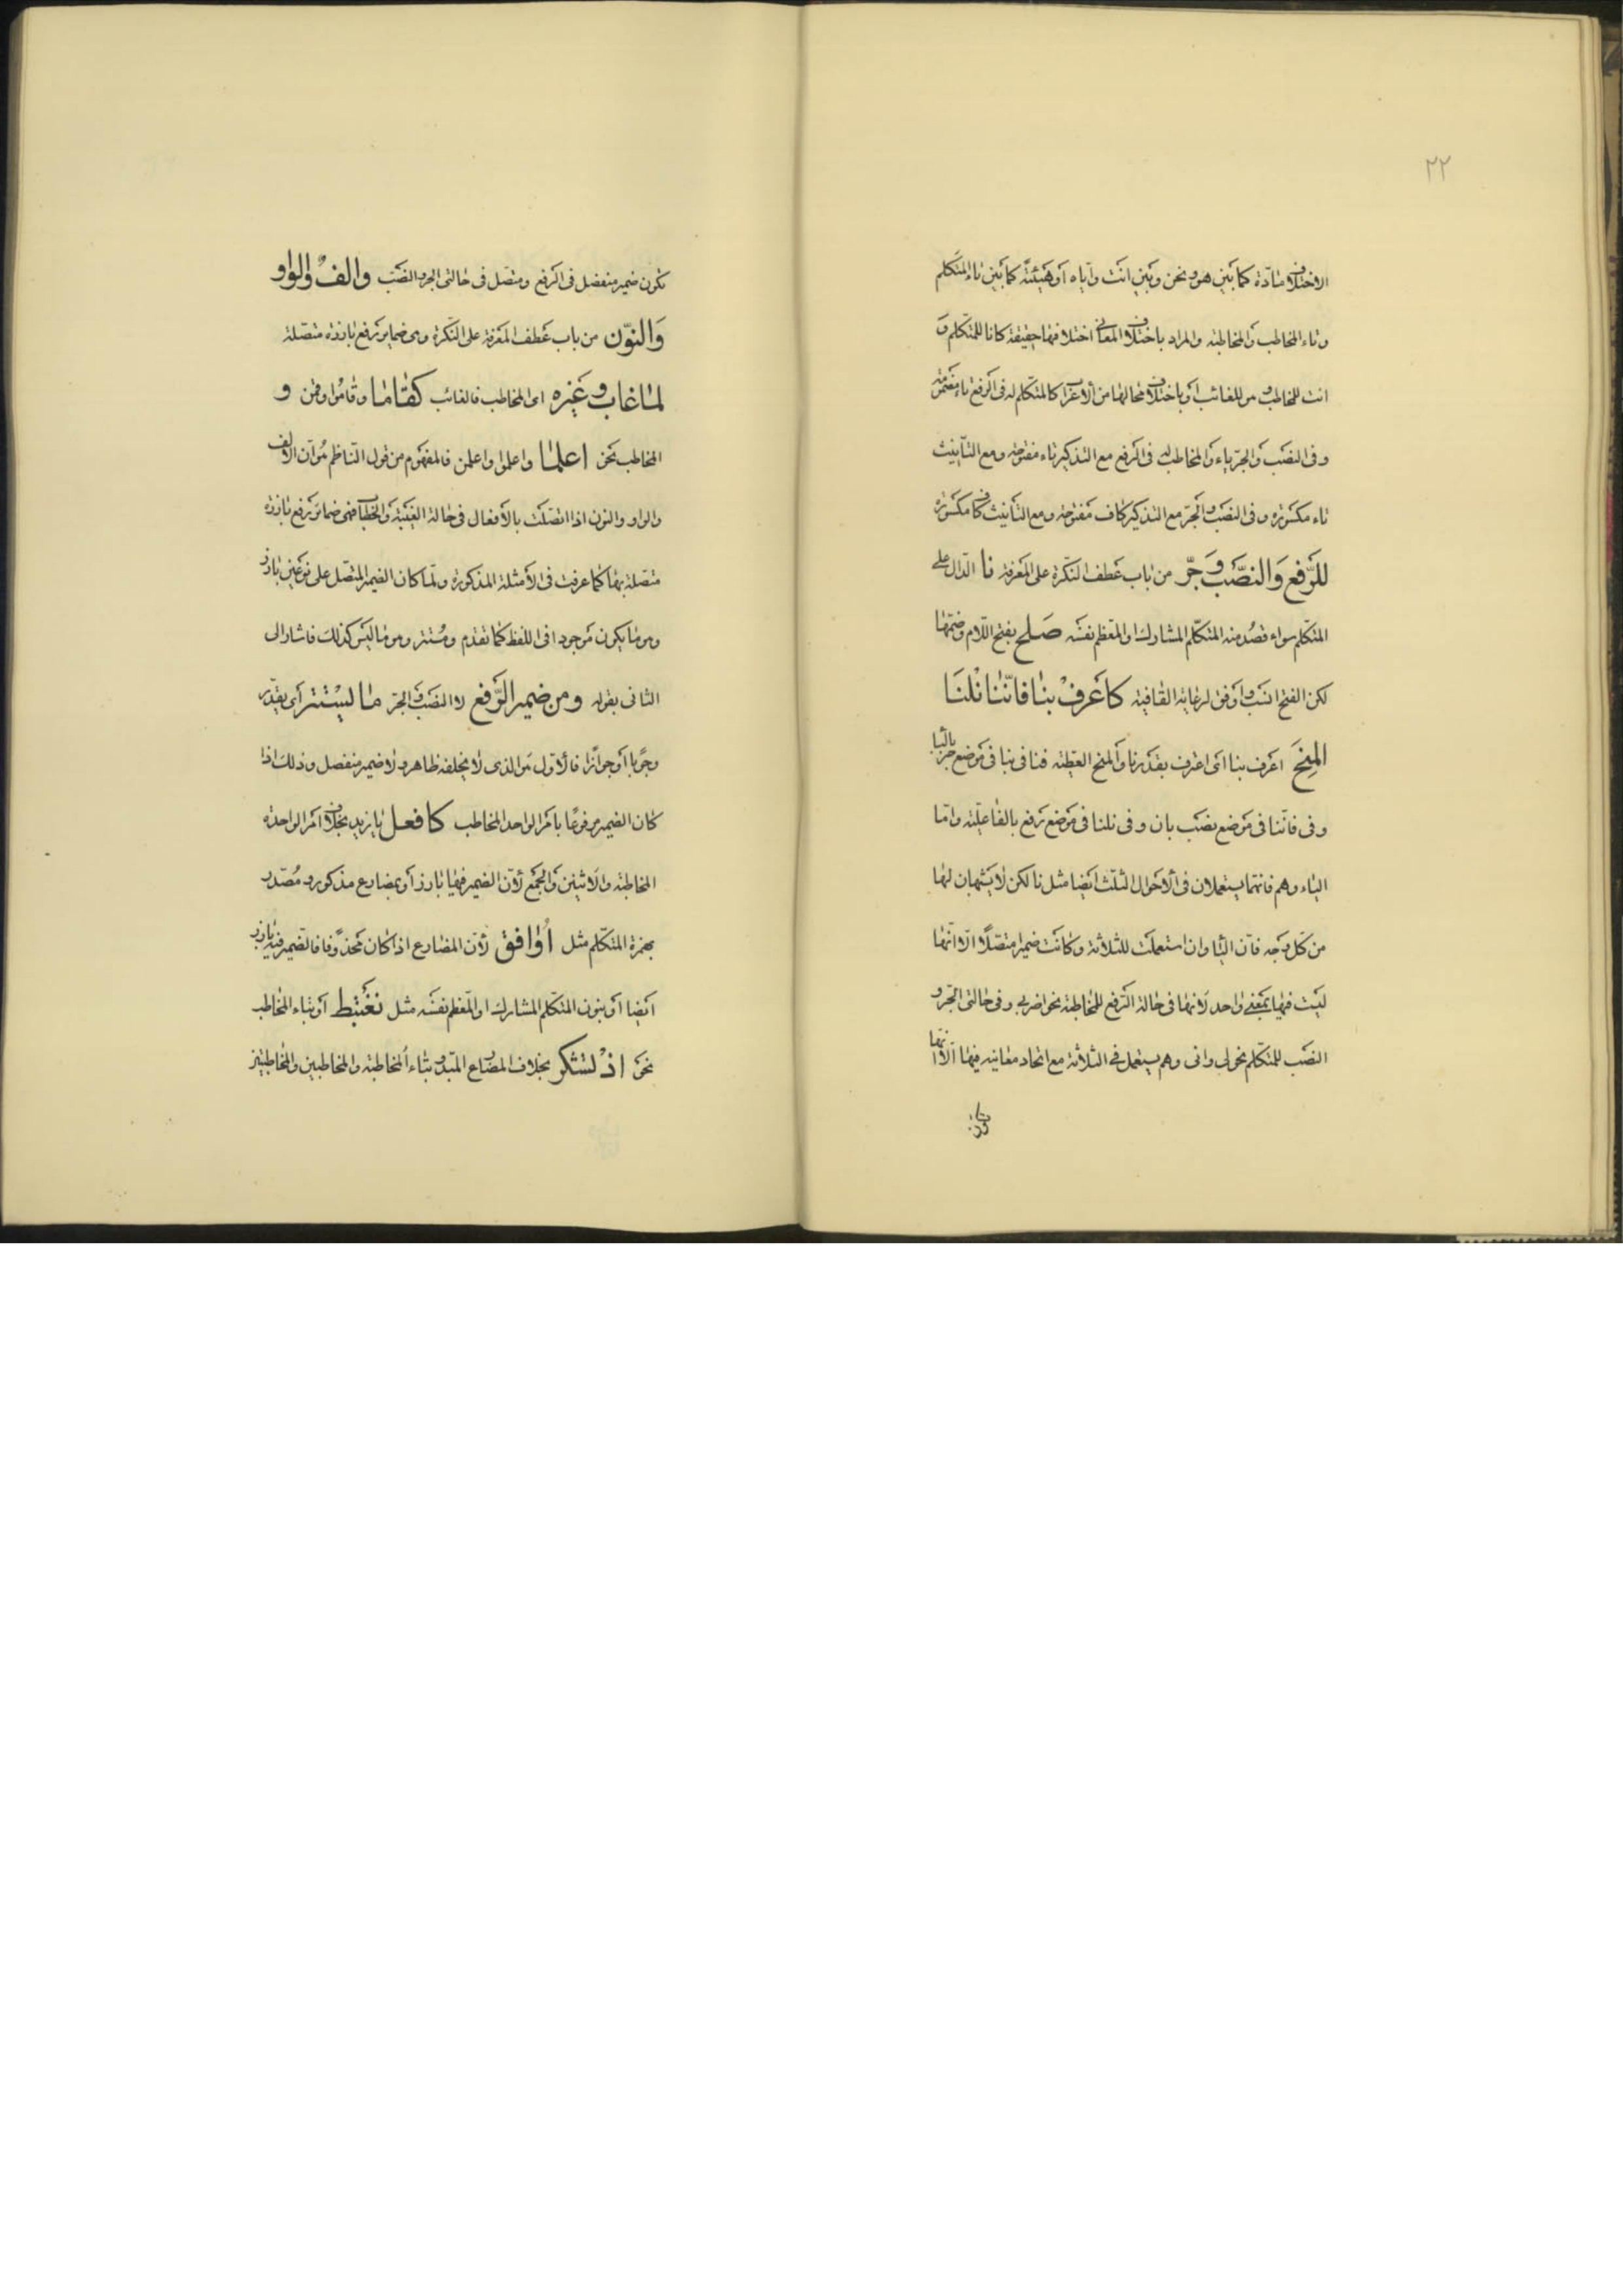 ٢٢
الاختلاف مادّة كما بين هو ونحن وبين انت وايّاه أو هيئةً كما بين تاء المتكلم
وتاء المخاطب والمخاطبة والمراد باختلاف المعانى اختلافها حقيقة كانا للمتكلم و
انت للمخاطب و هو للغائب أو باختلاف محالها من الاعراب كالمتكلم له فى الرفع تاء مضمومة
وفى النصب والجرّ ياء والمخاطب له فى الرفع مع التذكير تاء مفتوحة ومع التأنيث
تاء مكسورة وفى النصب والجرّ مع التذكير كاف مفتوحة ومع التأنيث كاف مكسورة
للرَّفع وَالنصَّب وَجرّ من باب عطف النكرة على المعرفة نا الدّال على
المتكلم سواء قصد منه المتكلّم المشارك او المعظم نفسَه صَلح بفتح اللّام وضمّها
لكن الفتح انسب و اوفق لرعاية القافية كاعَرفْ بنا فانّنا نلْنَا
المِنَح اعرف بنا اى اعترف بقدرنا والمنح العطية فنا فى بنا فى موضع جرّ بالبا
وفى فانّنا فى موضع نصَب بان وفى نلنا فى موضع رفع بالفاعليّة وامّا
الياء وهم فانّهما يستعملان فى الاحوال الثلث ايضا مثل نا لكن لا يشبهان لها
من كل وجه فانّ اليا وان استعملت للثلاثة وكانت ضميرا متصلًا الّا انّها
ليست فيها بمعنى واحد لانها فى حالة الرفع للمخاطبة نحو اضربى وفى حالتى الجرّ و
النصب للمتكلم نحو لى وانى وهم يستعمل فى الثلاثة مع اتحاد معانيه فيها الّا انّها
تكون
تكون ضمير منفصل فى الرفع ومتصل فى حالتى الجر والنصب والفٌ وَالواو
وَالنوّن من باب عطف المعرفة على النكرة وهى ضماير رفع بارزة متصلة
لما غاب وغيَره اى المخاطب فالغائب كقاما وقاموا وقمن و
المخاطب نحو اعلما واعلموا واعلمن فالمفهوم من قول الناظم هو ان الالف
والواو والنون اذا اتصلت بالافعال فى حالة الغيبة والخطاب فهى ضمائر رفع بارزة
متصلة بها كما عرفت فى الأمثلة المذكورة ولمّا كان الضمير المتصل على نوعين بارز
وهو ما يكون موجودا فى اللفظ كما تقدم ومُستتر وهو ما ليس كذلك فاشار الى
الثانى بقوله ومن ضمير الرَّفع لا النصب والجر ما ليسْتتر أى يقدّر
وجوبًا أو جوازًا فالأول هو الذى لا يخلفه ظاهر ولا ضمير منفصل وذلك اذا
كان الضمير مرفوعًا بامر الواحد المخاطب كافعل يا زيد بخلاف أمر الواحدة
المخاطبة والاثنين والجمع لأن الضمير فيها بارز أو بمضارع مذكور ومُصدّر
بهمزة المتكلم مثل اُوافق لأن المضارع اذا كان محذوفا فالضمير فيه بارز
أيضا أو بنون المتكلم المشارك او المعظم نفسَه مثل نغتبط أو بتاء المخاطب
نحو اذْ تشكر بخلاف المضارع المبدو بتاء المخاطبة والمخاطبين والمخاطبتين